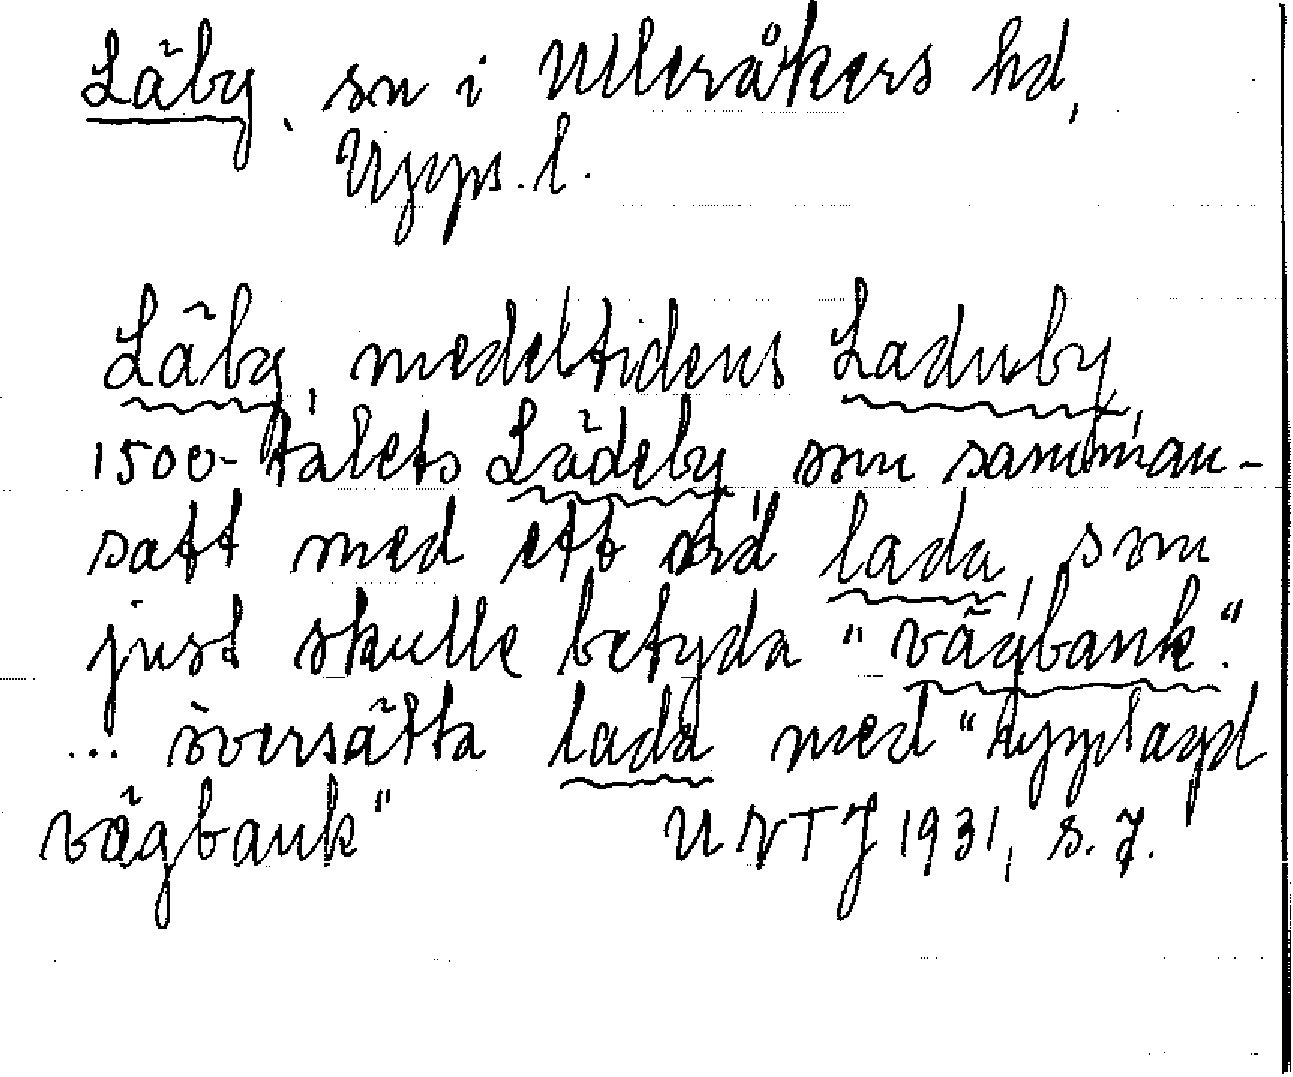 Läby, sn i Ulleråkers hd,
Upps. l.
Läby, medeltidens Laduby,
1500-talets Lådeby, som samman-
satt med ett ord lada, som
just skulle betyda "vägbank".
... översätta lada med "upplagd
vägbank" UNTJ 1931, s. 7.